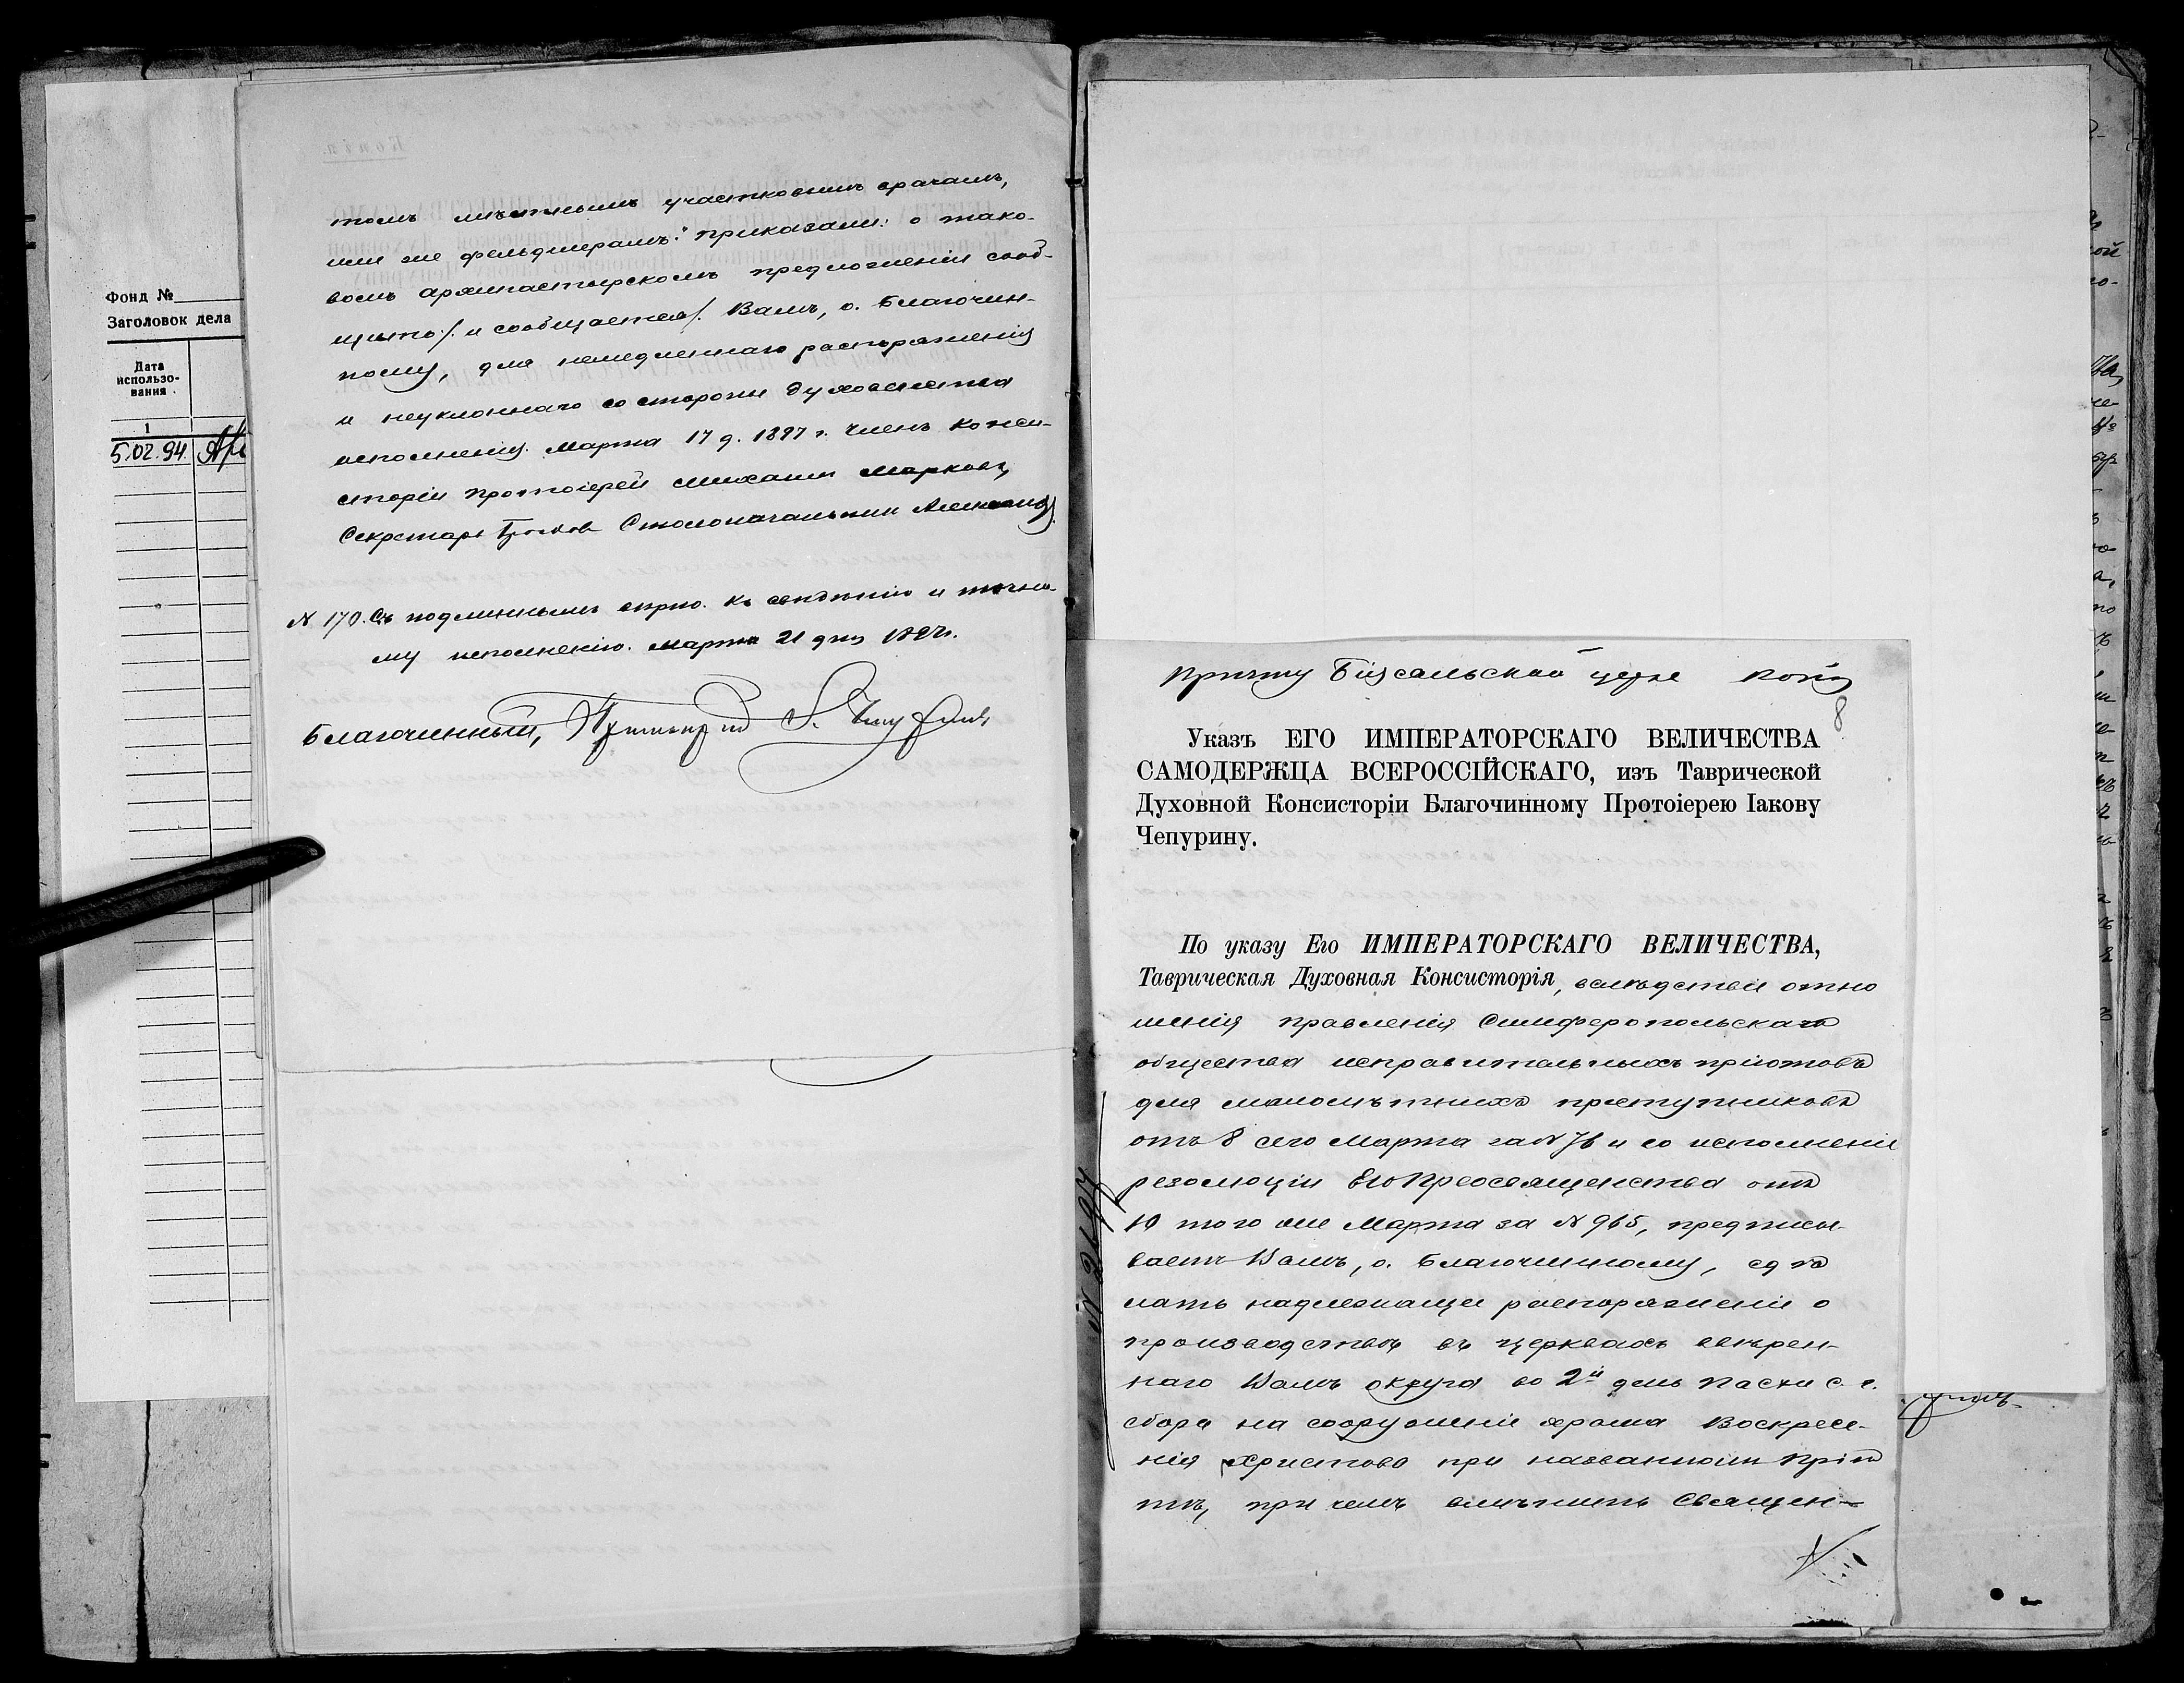 Фонд №
Заголовок дела
Дата
использо-
вания
1
5.02.94.
томъ мѣстнымъ участковымъ врачамъ,
или же фельдшерамъ." Приказали: о тако-
вомъ архипастырскомъ предложеніи сооб-
щить /. и сообщается /. Вамъ, о. Благочин-
ному, для немедленнаго распоряженія
и неуклоннаго со стороны духовенства
исполненія. Марта 17 д. 1897 г. Членъ Конси-
сторіи Протоіерей Михаилъ Марковъ,
Секретарь Столоначальникъ
N 170. Съ подлиннымъ вѣрно. Къ свѣдѣнію и точно-
му исполненію. Марта 21 дня 1897 г.
Благочинный, Протоіерей І. Чепуринъ
Причту Біясальской церк Копія
8
Указъ ЕГО ИМПЕРАТОРСКАГО ВЕЛИЧЕСТВА
САМОДЕРЖЦА ВСЕРОССІЙСКАГО, изъ Таврической
Духовной Консисторіи Благочинному Протоіерею Іакову
Чепурину.
По указу Его ИМПЕРАТОРСКАГО ВЕЛИЧЕСТВА,
Таврическая Духовная Консисторія, вслѣдствіи отно
шенія правленія Симферопольскаго
общества исправительныхъ пріютовъ
для малолѣтнихъ преступниковъ
отъ 8 сего Марта за N 76 и во исполненіе
резолюціи Его Преосвященства отъ
10 того же Марта за N 965, предписы-
ваетъ Вамъ, о. Благочинному, сдѣ
лать надлежащее распоряженіе о
производствѣ въ церквахъ ввѣрен-
наго Вамъ округа во 2й день Пасхи с. г.
сбора на сооруженіе храма Воскресе-
нія Христова при названномъ Прію
тѣ, при чемъ вмѣнить Священ-